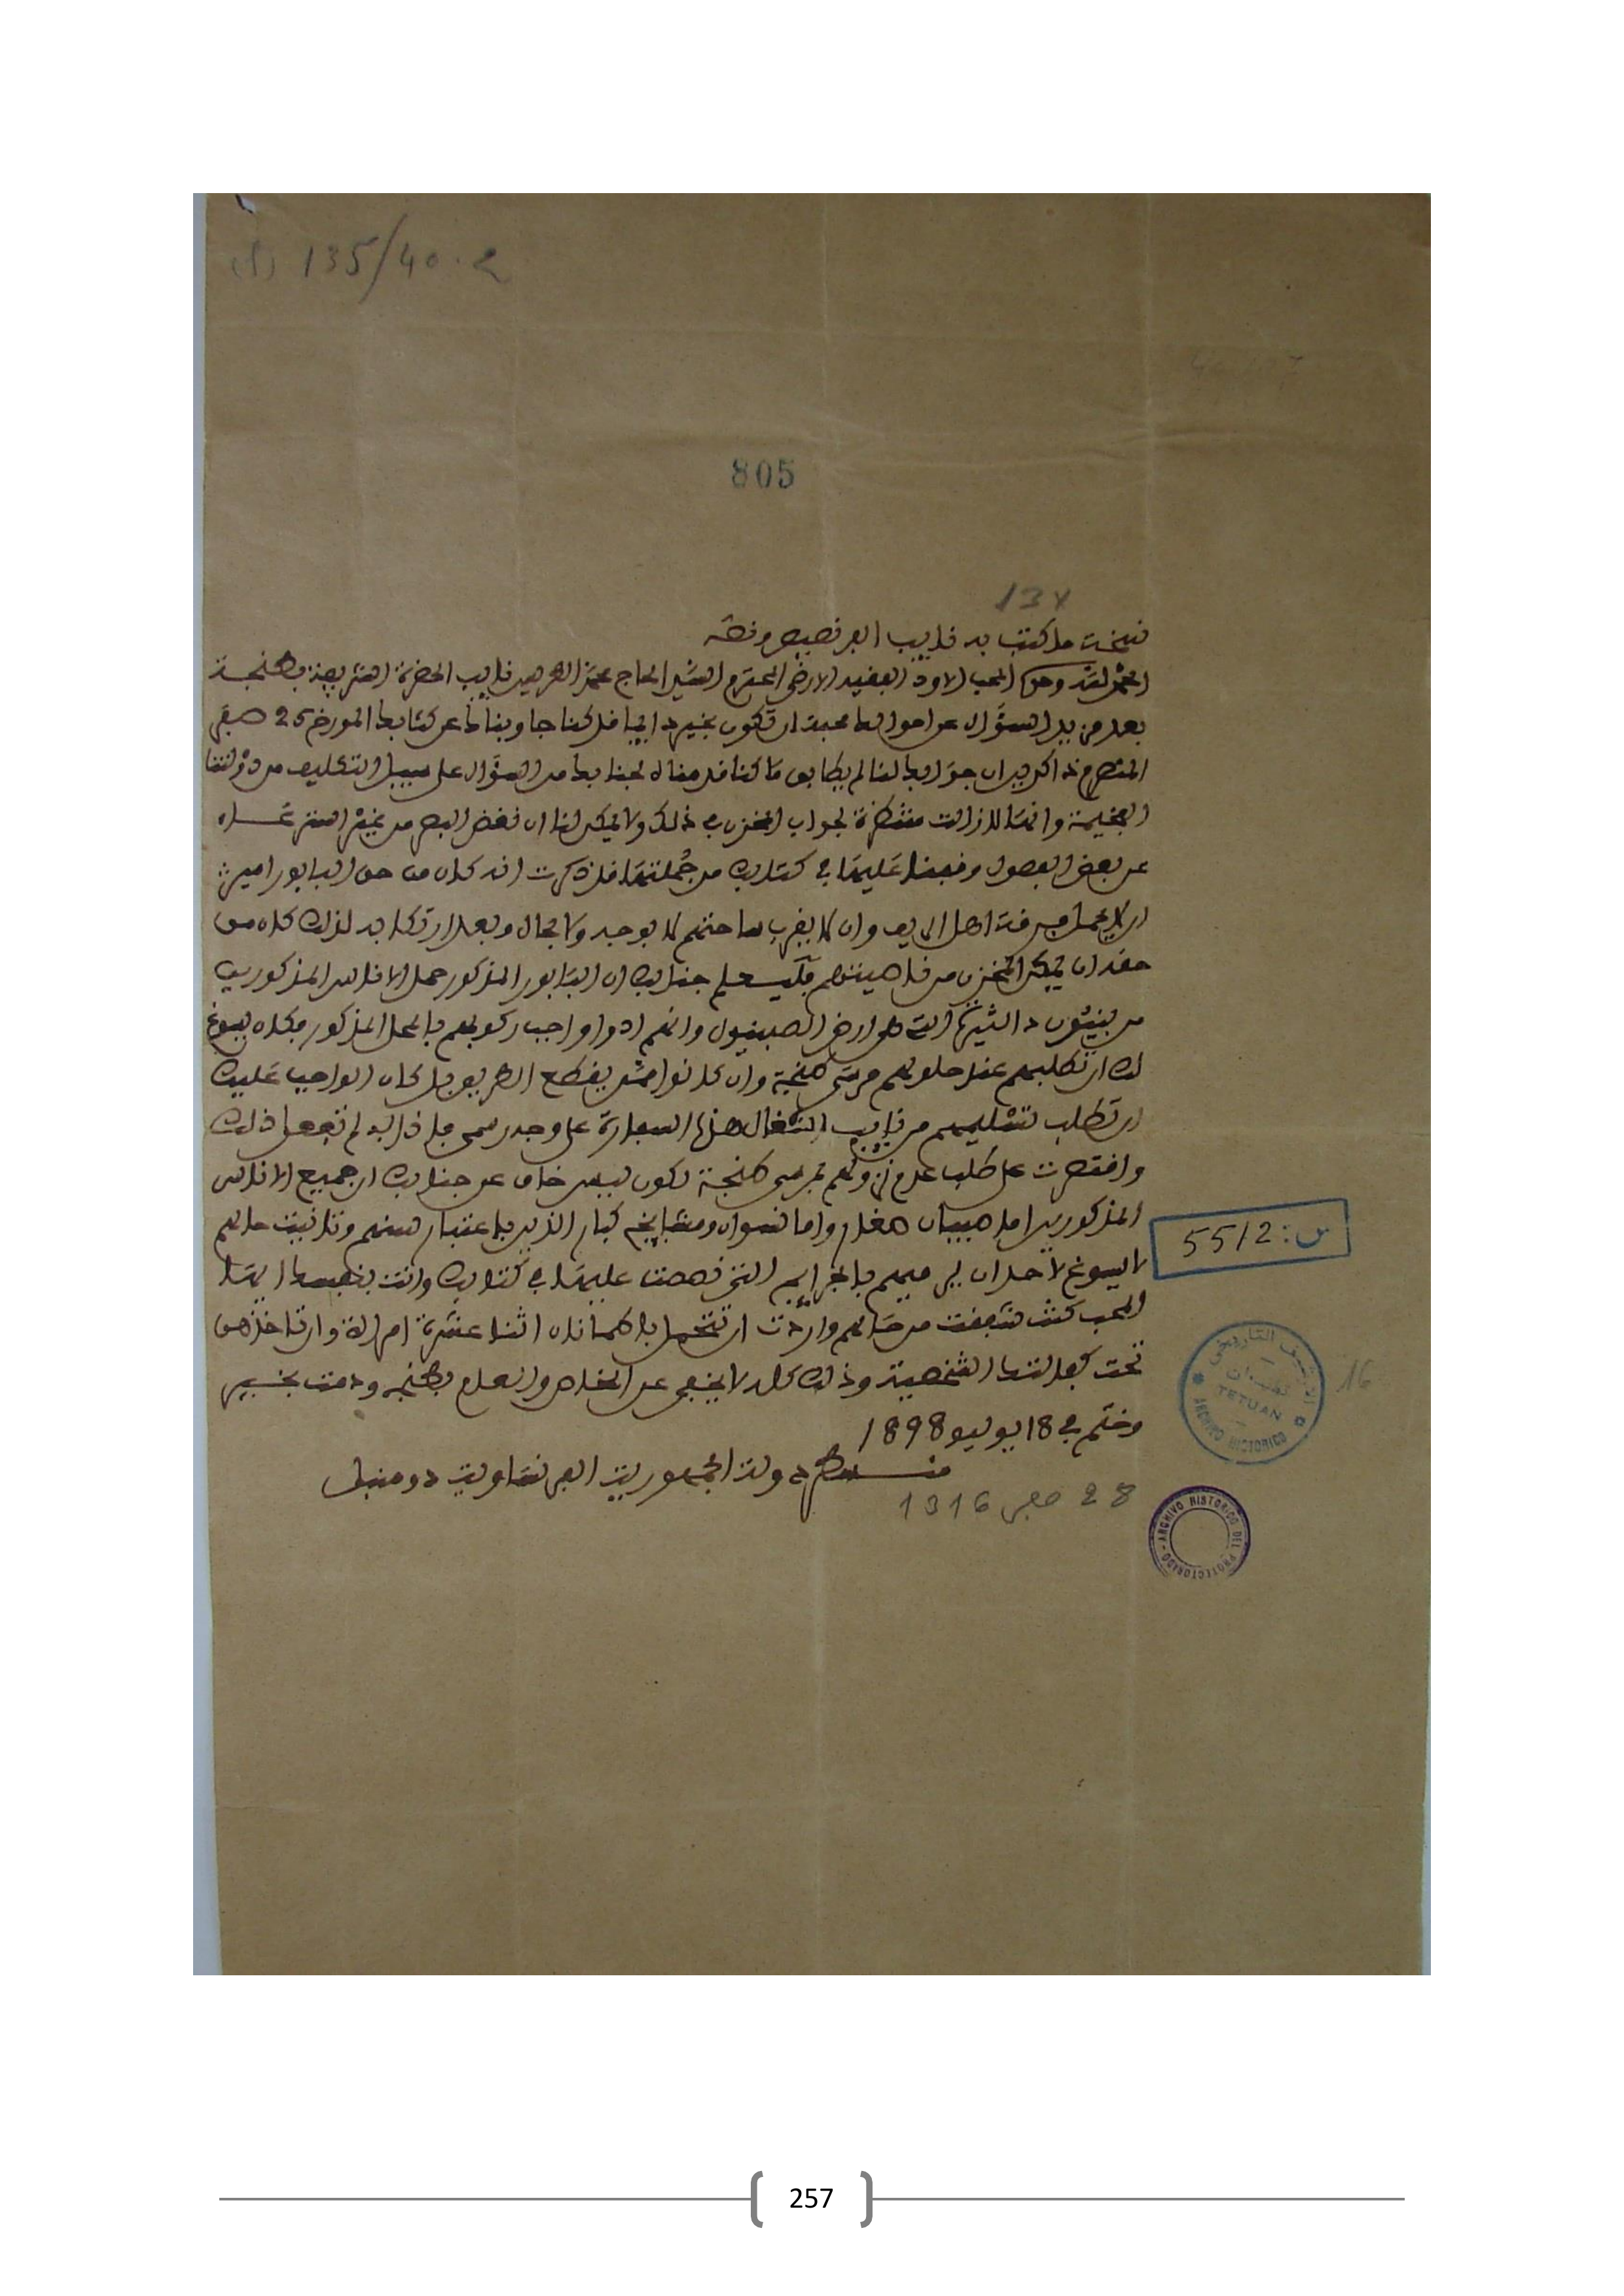 (1) 135/40.2
805
137
نسخت ما كتب به نايب الفرنصيص ونصه
الحمد لله وحده المحب الاود الفقيه الارضى المحترم السيد الحاج محمد الطريس نايب الحضرة الشريفة بطنجة
بعد مزيد السؤال عن احوالك محبة ان تكون بخير دايما فقد كنا جاوبناك عن كتابك المورخ 25 صفر
المنصرم ذاكرين ان جوابك لنا لم يطابق ما كنا قدمناه لجنابك من السؤال على سبيل التكليف من دولتنا
الفخيمة وانها لازالت منتظرة لجواب المخزن في ذلك ولا يمكن لنا ان نغض البصر من غير
عن بعض الفصول وقفنا عليها في كتابك من جملتها قد ذكرت انه كان من حق البابور
ان لا يحمل اهل الريف وان لا يقرب ساحتهم لا بوجه ولا بحال وبعد ارتكابه لذلك كان من
حقه ان يمكن المخزن من ناصيتهم جنابك ان البابور المذكور حمل الاناس المذكورين
من التي هي ارض الصبنيول وانهم ادوا واجب ركوبهم بالمحل المذكور فكان يسوغ
لك ان تطلبهم عند حلولهم مرسى طنجة وان كانوا ممن يقطع الطريق بل كان الواجب عليك
ان تطلب تسليمهم من نايب اشغال هذه السفارة على وجه رسمي
واقتصرت على طلب عدم نزولهم بمرسى طنجة لكون ليس خاف عن جنابك ان جميع الاناس
المذكورين اما صبيان صغار واما نسوان ومشايخ كبار الذين باعتبار سنهم حالهم
لا يسوغ لاحد ان يرميهم بالجرايم التي نصصت عليها في كتابك وانت بنفسك ايها
المحب كنت شفقت من حالهم واردت ان تتحمل اثنا عشرة امراة وان تاخذهن
تحت كفالتك الشخصية وذلك كله لا يخفى عن الخاص والعام بطنجة ودمت بخير
وختم في 18 يوليو 1898
دولة الجمهورية الفرنساوية دومنبل
28 صفر 1316
س: 5512
16
TETUAN
ARCHIVO HISTORICO
ARCHIVO HISTORICO DEL PROTECTORADO
257